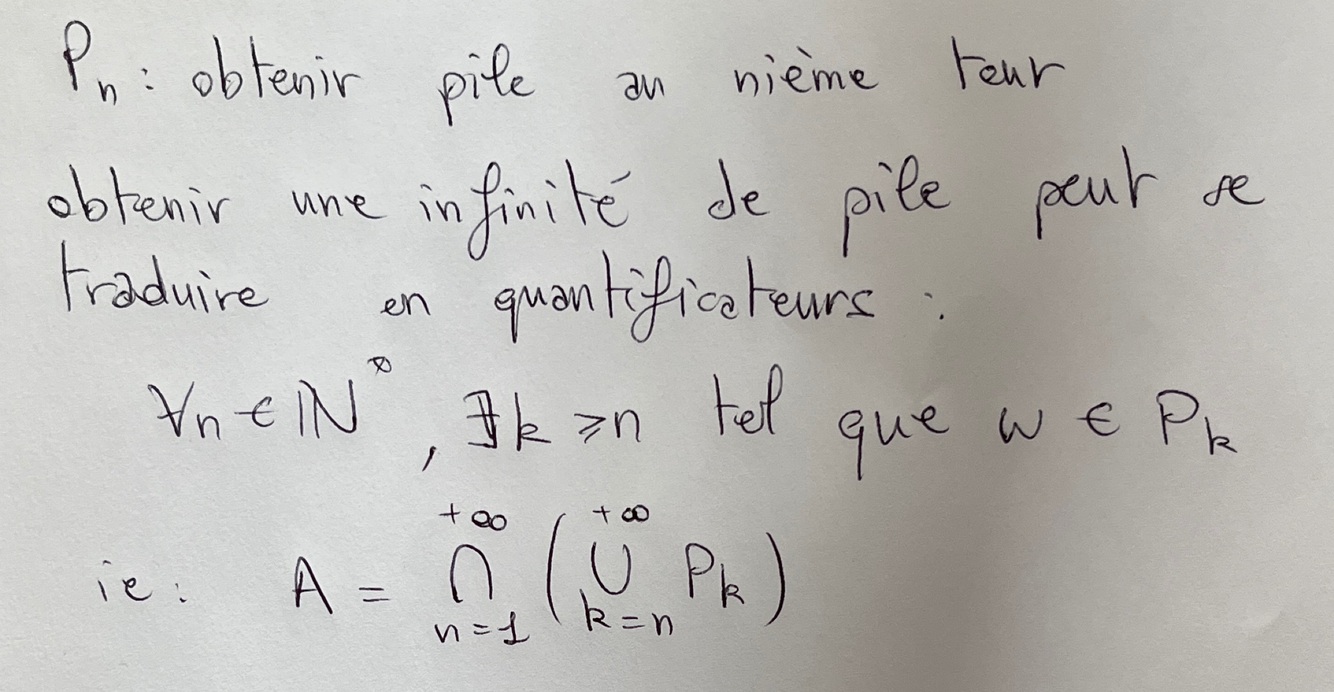 Pₙ : obtenir pile au nième tour
obtenir une infinité de pile peut se
traduire en quantificateurs :
∀n ∈ ℕ*, ∃k ≥ n tel que w ∈ Pₖ
ie : A = ⋂_{n=1}^{+∞} ( ⋃_{k=n}^{+∞} Pₖ )